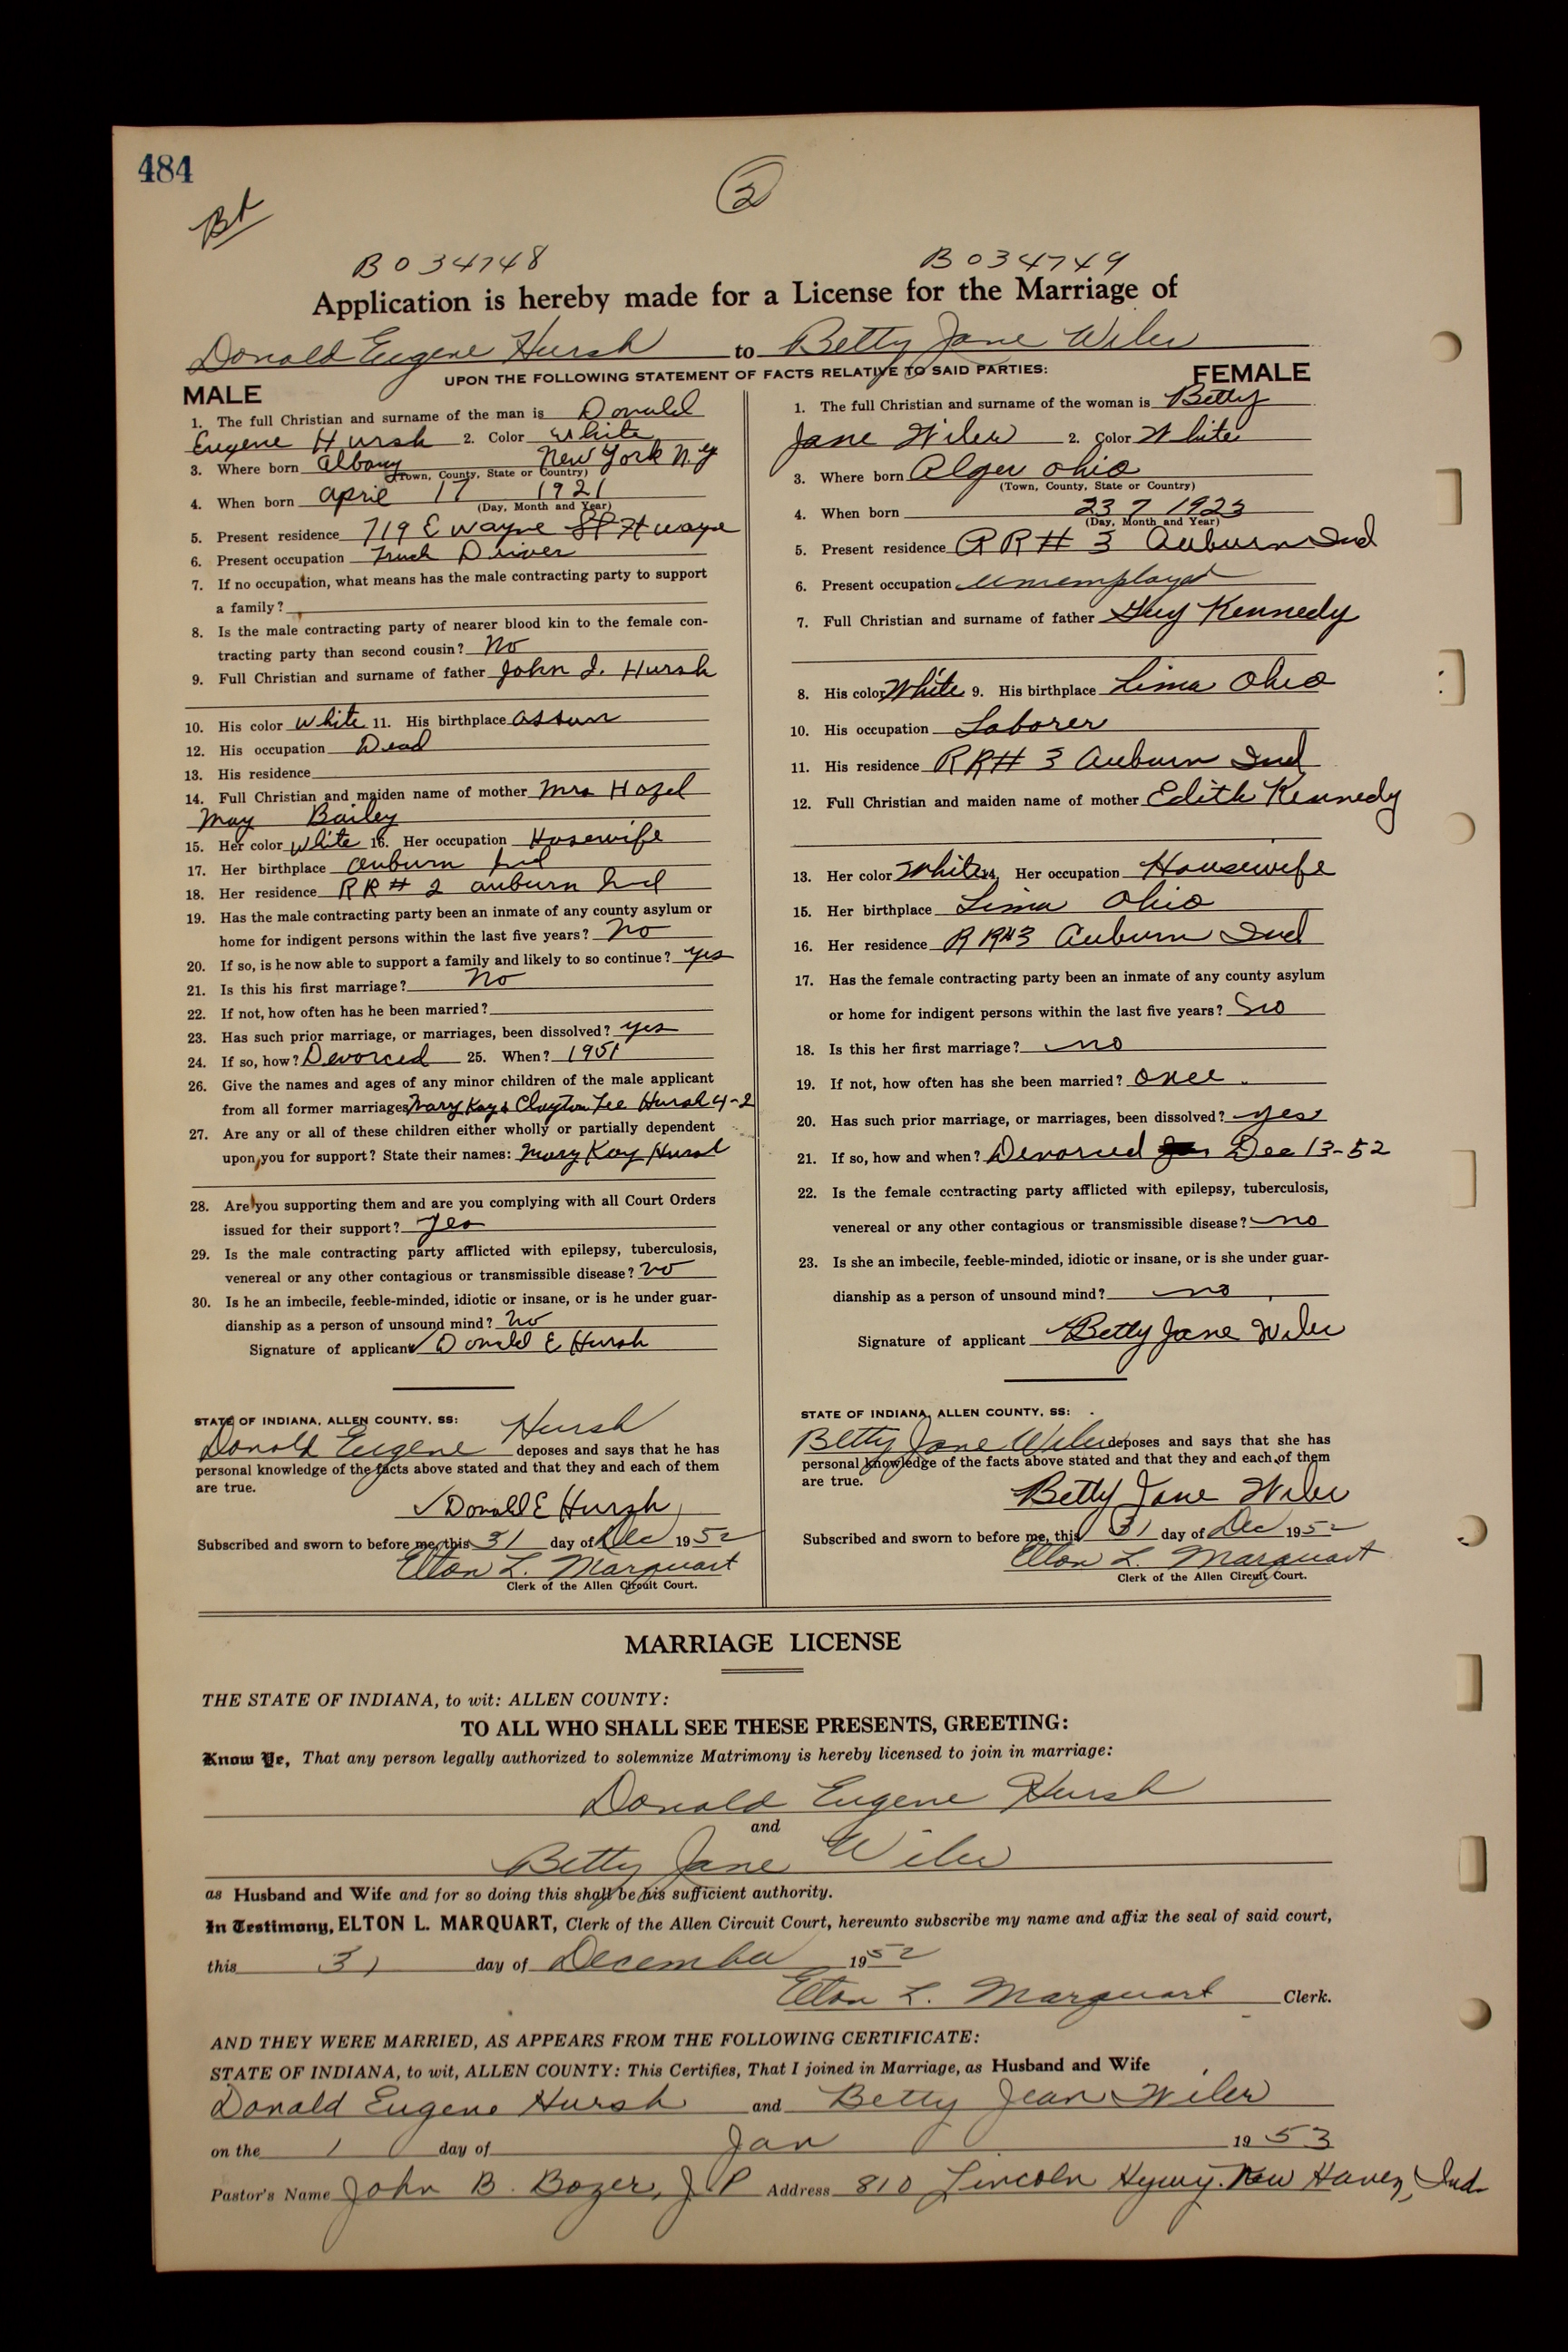 484
Bt
2
B034748
B034749
Application is hereby made for a License for the Marriage of
Donald Eugene Hursh to Betty Jane Wiler
UPON THE FOLLOWING STATEMENT OF FACTS RELATIVE TO SAID PARTIES:
MALE
1. The full Christian and surname of the man is Donald
Eugene Hursh 2. Color White
3. Where born Albany New York N.Y
(Town, County, State or Country)
4. When born April 17 1921
(Day, Month and Year)
5. Present residence 719 E Wayne St Ft Wayne
6. Present occupation Truck Driver
7. If no occupation, what means has the male contracting party to support
a family?
8. Is the male contracting party of nearer blood kin to the female con-
tracting party than second cousin? No
9. Full Christian and surname of father John I. Hursh
10. His color White 11. His birthplace
12. His occupation Dead
13. His residence
14. Full Christian and maiden name of mother Mrs Hazel
May Bailey
15. Her color White 16. Her occupation Hosewife
17. Her birthplace Auburn Ind
18. Her residence RR # 2 Auburn Ind
19. Has the male contracting party been an inmate of any county asylum or
home for indigent persons within the last five years? No
20. If so, is he now able to support a family and likely to so continue? Yes
21. Is this his first marriage? No
22. If not, how often has he been married?
23. Has such prior marriage, or marriages, been dissolved? Yes
24. If so, how? Devorced 25. When? 1951
26. Give the names and ages of any minor children of the male applicant
from all former marriages Mary Kay & Clayton Lee Hursh 4-2
27. Are any or all of these children either wholly or partially dependent
upon you for support? State their names: Mary Kay Hursh
28. Are you supporting them and are you complying with all Court Orders
issued for their support? Yes
29. Is the male contracting party afflicted with epilepsy, tuberculosis,
venereal or any other contagious or transmissible disease? No
30. Is he an imbecile, feeble-minded, idiotic or insane, or is he under guar-
dianship as a person of unsound mind? No
Signature of applicant Donald E Hursh
STATE OF INDIANA, ALLEN COUNTY, SS: Hursh
Donald Eugene deposes and says that he has
personal knowledge of the facts above stated and that they and each of them
are true.
Donald E Hursh
Subscribed and sworn to before me, this 31 day of Dec 1952
Elton L. Marquart
Clerk of the Allen Circuit Court.
FEMALE
1. The full Christian and surname of the woman is Betty
Jane Wiler 2. Color White
3. Where born Alger Ohio
(Town, County, State or Country)
4. When born 23 7 1923
(Day, Month and Year)
5. Present residence RR # 3 Auburn Ind
6. Present occupation Unemployed
7. Full Christian and surname of father Guy Kennedy
8. His color White 9. His birthplace Lima Ohio
10. His occupation Laborer
11. His residence RR# 3 Auburn Ind
12. Full Christian and maiden name of mother Edith Kennedy
13. Her color White 14. Her occupation Housewife
15. Her birthplace Lima Ohio
16. Her residence R R#3 Auburn Ind
17. Has the female contracting party been an inmate of any county asylum
or home for indigent persons within the last five years? No
18. Is this her first marriage? no
19. If not, how often has she been married? once
20. Has such prior marriage, or marriages, been dissolved? yes
21. If so, how and when? Devorced Dec 13-52
22. Is the female contracting party afflicted with epilepsy, tuberculosis,
venereal or any other contagious or transmissible disease? no
23. Is she an imbecile, feeble-minded, idiotic or insane, or is she under guar-
dianship as a person of unsound mind? no
Signature of applicant Betty Jane Wiler
STATE OF INDIANA, ALLEN COUNTY, SS:
Betty Jane Wiler deposes and says that she has
personal knowledge of the facts above stated and that they and each of them
are true.
Betty Jane Wiler
Subscribed and sworn to before me, this 31 day of Dec 1952
Elton L. Marquart
Clerk of the Allen Circuit Court.
MARRIAGE LICENSE
THE STATE OF INDIANA, to wit: ALLEN COUNTY:
TO ALL WHO SHALL SEE THESE PRESENTS, GREETING:
Know Ye, That any person legally authorized to solemnize Matrimony is hereby licensed to join in marriage:
Donald Eugene Hursh
and
Betty Jane Wiler
as Husband and Wife and for so doing this shall be his sufficient authority.
In Testimony, ELTON L. MARQUART, Clerk of the Allen Circuit Court, hereunto subscribe my name and affix the seal of said court,
this 31 day of December 1952
Elton L. Marquart Clerk.
AND THEY WERE MARRIED, AS APPEARS FROM THE FOLLOWING CERTIFICATE:
STATE OF INDIANA, to wit, ALLEN COUNTY: This Certifies, That I joined in Marriage, as Husband and Wife
Donald Eugene Hursh and Betty Jean Wiler
on the 1 day of Jan 1953
Pastor's Name John B. Bozer, J P Address 810 Lincoln Hgwy. New Haven, Ind.